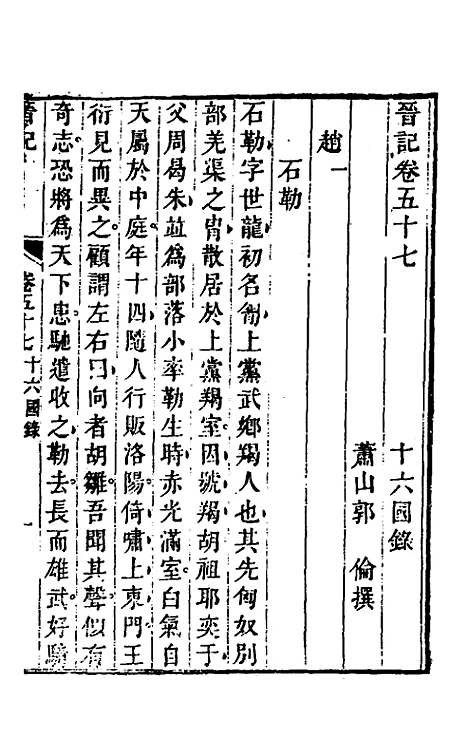 晉記卷五十七
十六國錄
蕭山郭 倫撰
趙一
石勒
石勒字世龍初名㔨上黨武鄉羯人也其先匈奴別
部羌渠之冑散居於上黨羯室因號羯胡祖耶奕于
父周曷朱並爲部落小率勒生時赤光滿室白氣自
天屬於中庭年十四隨人行販洛陽倚嘯上東門王
衍見而異之顧謂左右曰向者胡雛吾聞其聲似有
奇志恐將爲天下患馳遣收之勒去長而雄武好騎
晉記
卷五十七十六國錄
一